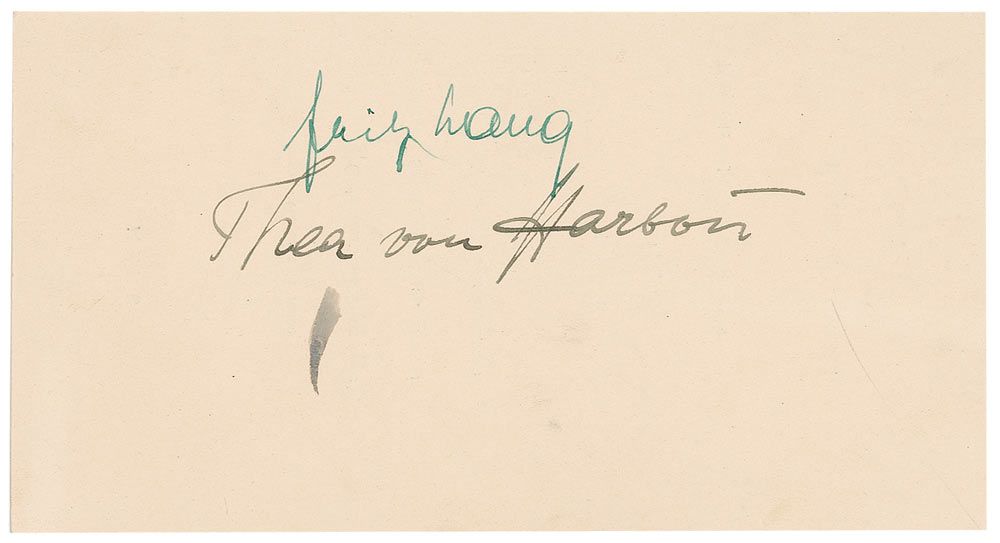 Fritz Lang
Thea von Harbou